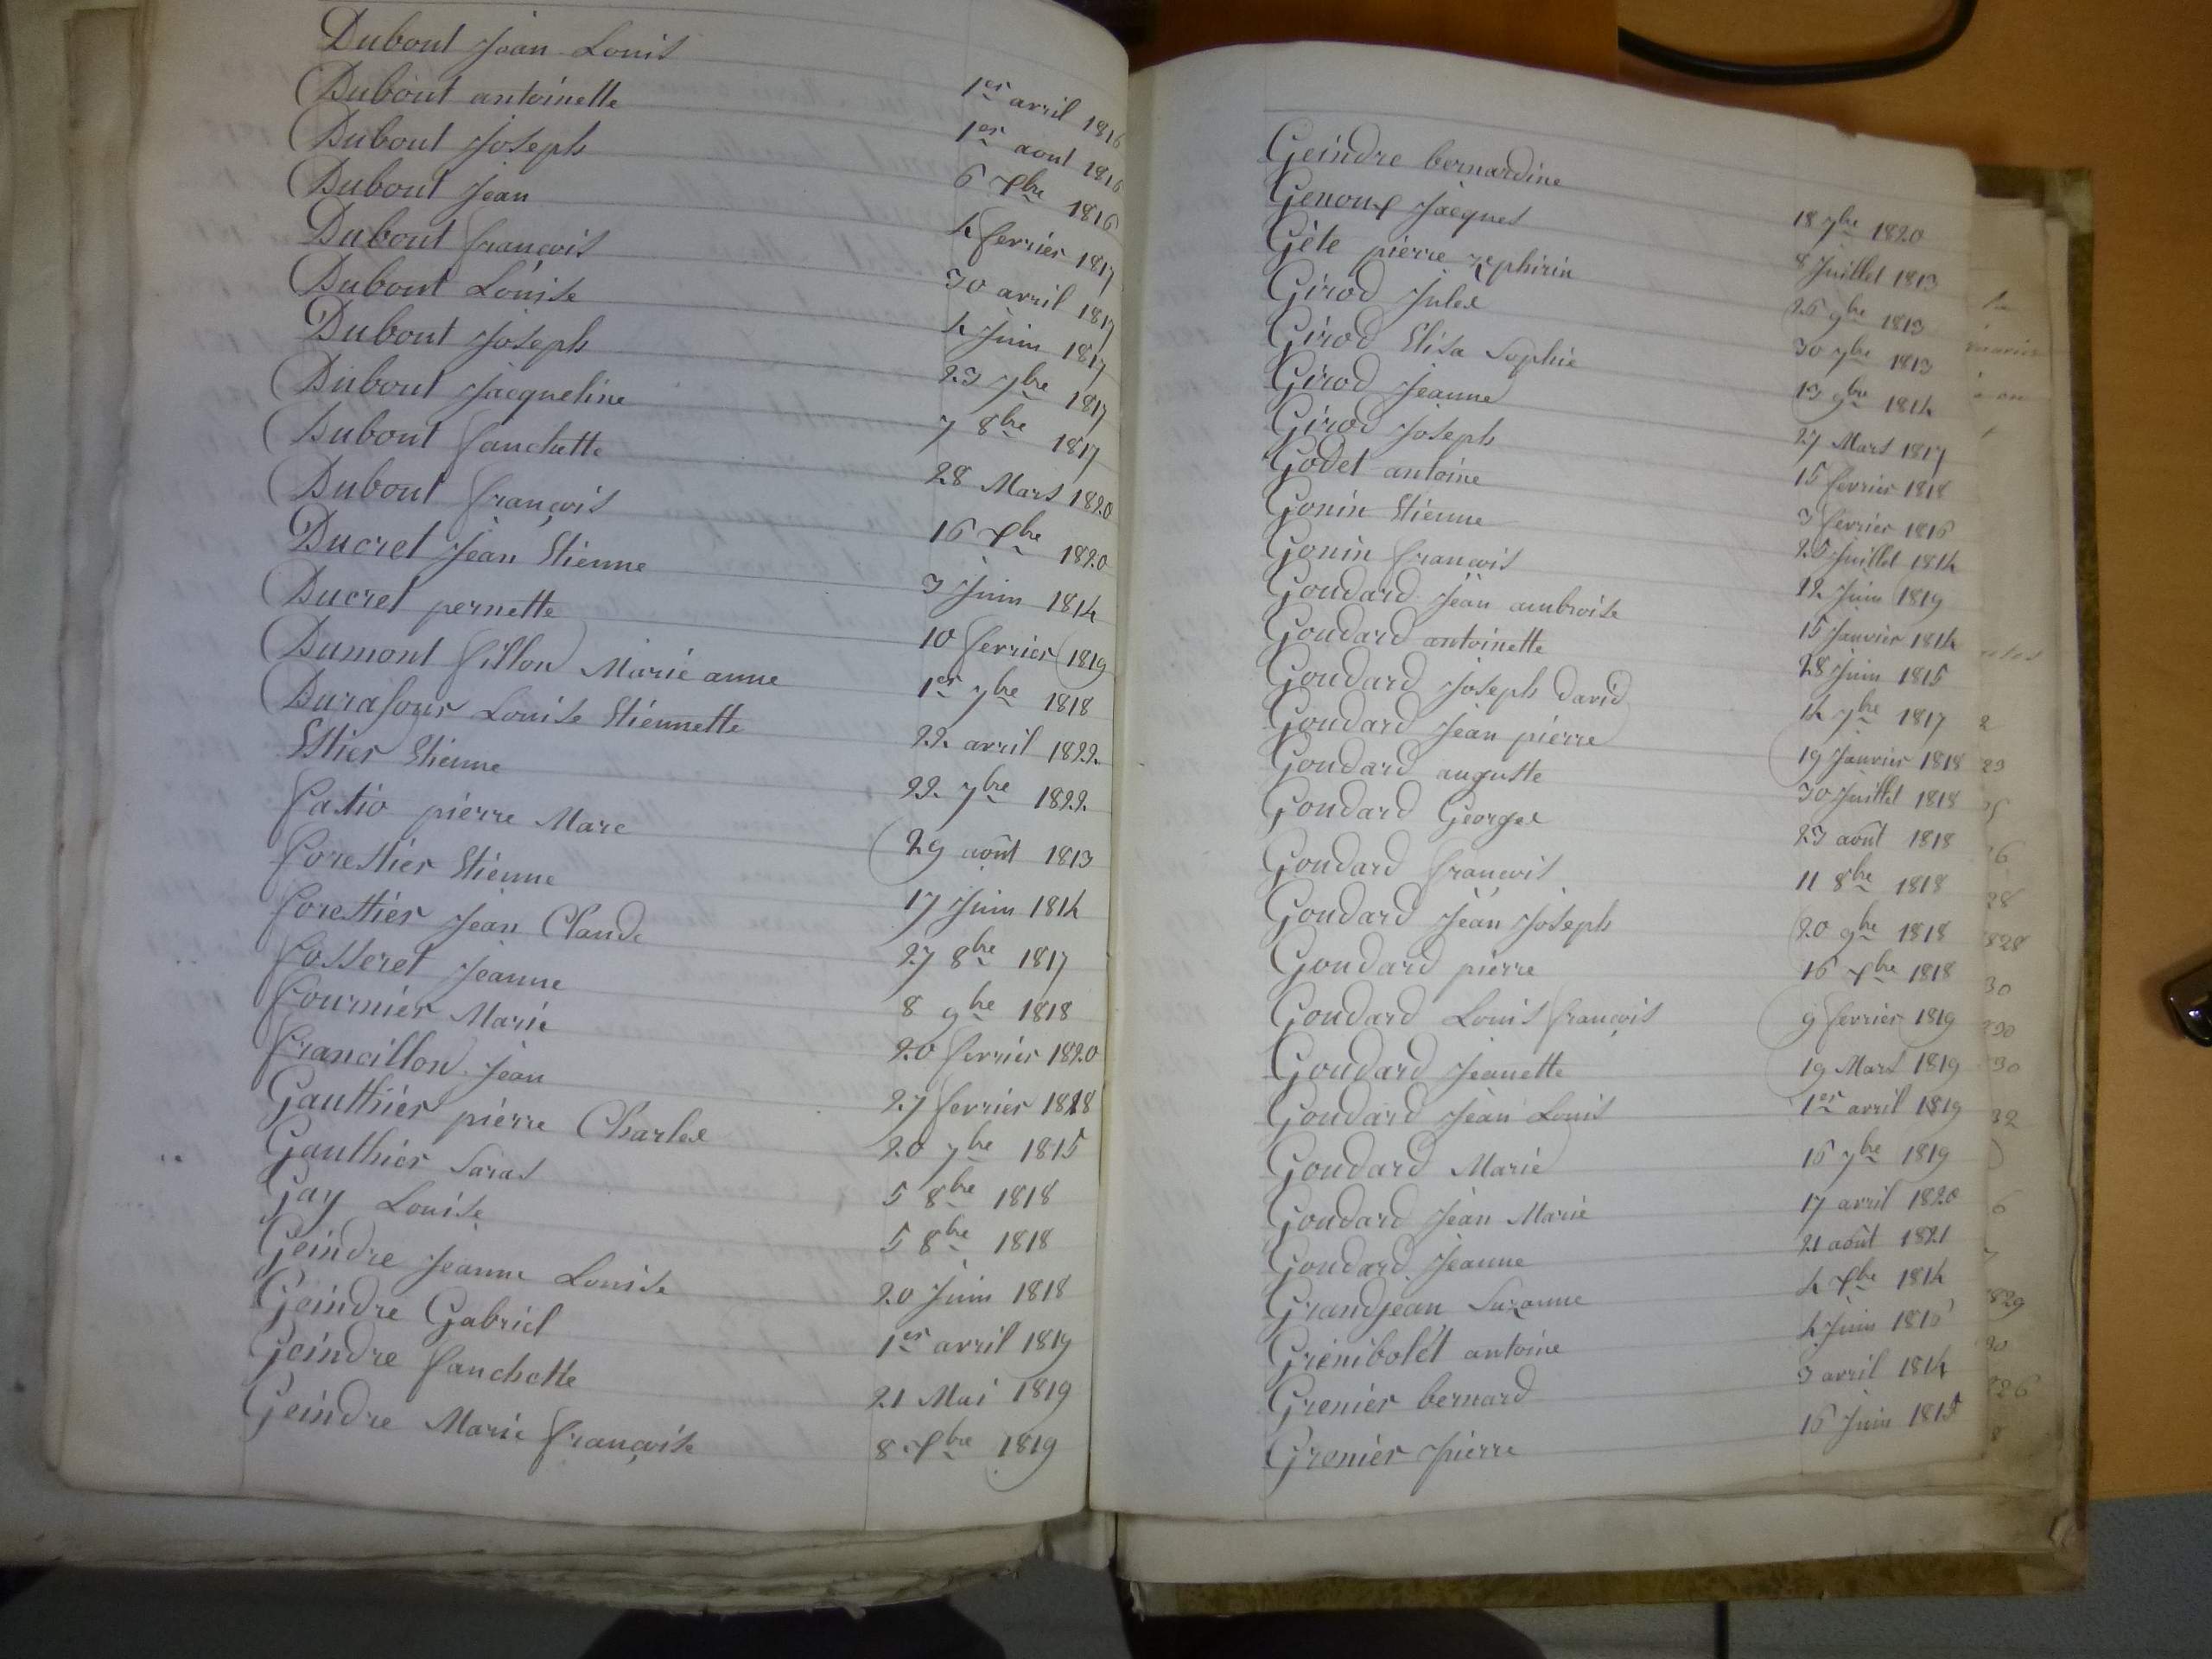 Dubout Jean Louis 1er avril 1816
Dubout antoinette 1er aout 1816
Dubout Joseph 6 Xbre 1816
Dubout Jean 4 fevrier 1817
Dubout françois 30 avril 1817
Dubout Louise 4 Juin 1817
Dubout Joseph 23 7bre 1817
Dubout Jacqueline 7 8bre 1817
Dubout fanchette 28 Mars 1820
Dubout françois 16 Xbre 1820
Ducret Jean Etienne 3 Juin 1814
Ducret pernette 10 fevrier 1819
Dumont fillon Marie anne 1er 7bre 1818
Durafour Louise Etiennette 22 avril 1822
Estier Etienne 22 7bre 1822
fatio pierre Marc 29 août 1813
forestier Etienne 17 Juin 1814
forestier Jean Claude 27 8bre 1817
fosseret Jeanne 8 9bre 1818
fournier Marie 20 fevrier 1820
francillon Jean 27 fevrier 1818
Gauthier pierre Charles 20 7bre 1815
Gauthier Saras 5 8bre 1818
Gay Louise 5 8bre 1818
Geindre Jeanne Louise 20 Juin 1818
Geindre Gabriel 1er avril 1819
Geindre fanchette 21 Mai 1819
Geindre Marie françoise 8 Xbre 1819
Geindre bernardine 18 7bre 1820
Genoux Jacques 8 Juillet 1813
Gète pierre zephirin 26 9bre 1813
Girod Jules 30 7bre 1813
Girod Elisa Sophie 13 9bre 1814
Girod Jeanne 27 Mars 1817
Girod Joseph 15 fevrier 1818
Godet antoine 3 fevrier 1816
Gonin Etienne 25 Juillet 1814
Gonin françois 12 Juin 1819
Goudard Jean ambroise 15 Janvier 1814
Goudard antoinette 28 Juin 1815
Goudard Joseph David 14 7bre 1817
Goudard Jean pierre 19 Janvier 1818
Goudard auguste 30 Juillet 1818
Goudard Georges 23 août 1818
Goudard francois 11 8bre 1818
Goudard Jean Joseph 20 9bre 1818
Goudard pierre 16 Xbre 1818
Goudard Louis françois 9 fevrier 1819
Goudard Jeanette 19 Mars 1819
Goudard Jean Louis 1er avril 1819
Goudard Marie 16 7bre 1819
Goudard Jean Marie 17 avril 1820
Goudard Jeanne 21 août 1821
Grandjean Suzanne 4 Xbre 1814
Grenibolet antoine 4 Juin 1816
Grenier bernard 3 avril 1814
Grenier pierre 16 Juin 1815